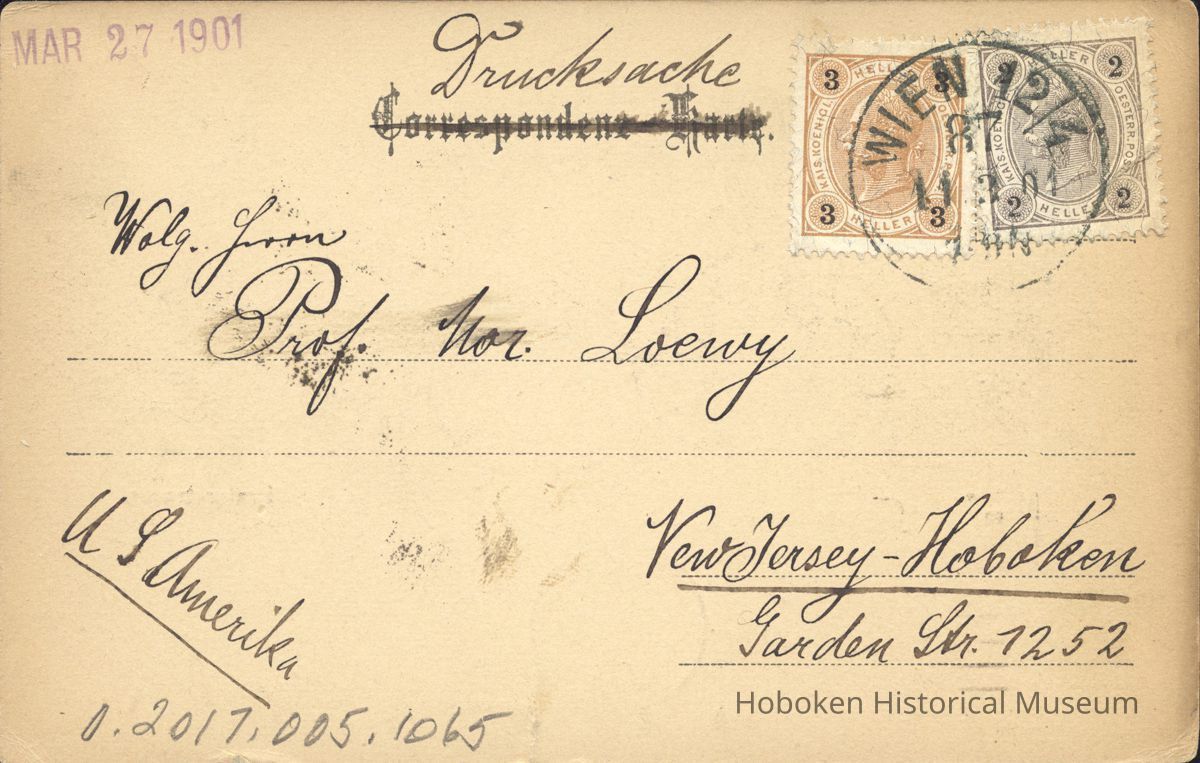 MAR 27 1901
Drucksache
Correspondenz-Karte.
3 HELLER 3
KAIS. KOENIGL.
3 HELLER 3
2 HELLER 2
KAIS. KOENIGL. OESTERR. POST
2 HELLER 2
WIEN 12/1
87
11.3.01
Wolg. Herrn
Prof. Mor. Loewy
U S Amerika
New Jersey - Hoboken
Garden Str. 1252
0.2017.005.1065
Hoboken Historical Museum